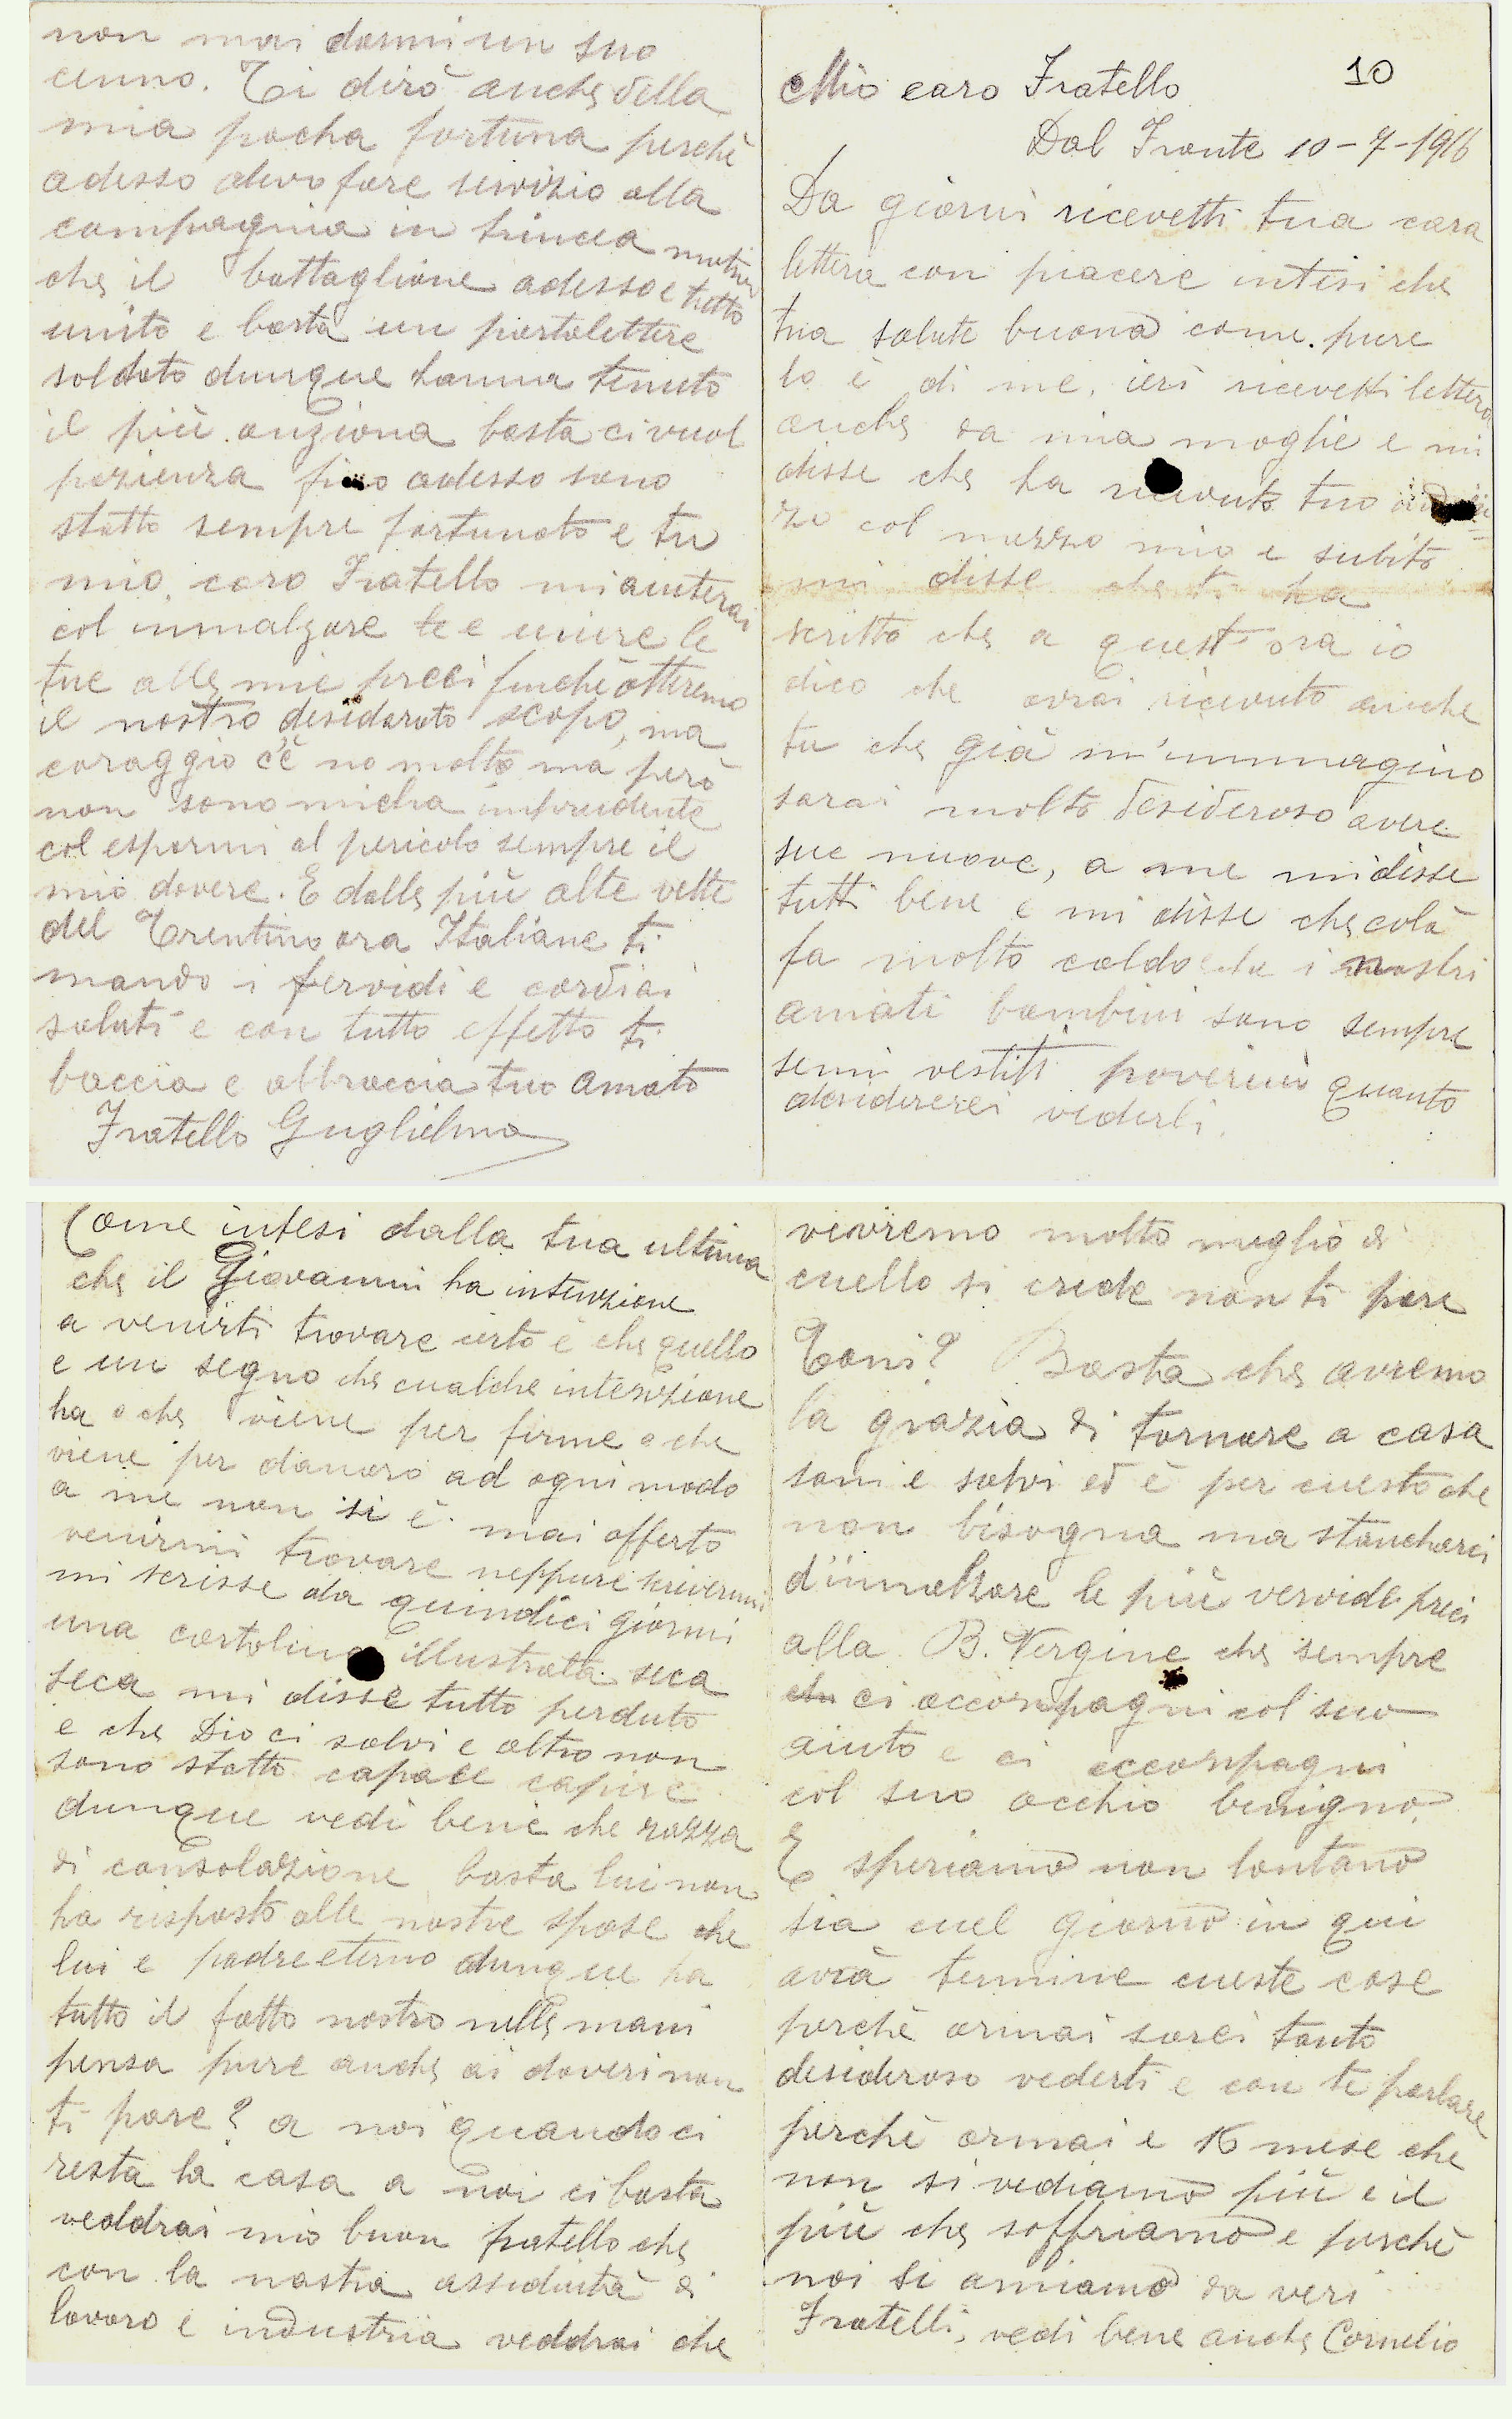 10
Mio caro Fratello
Dal Fronte 10-7-1916
Da giorni ricevetti tua cara
lettera con piacere intesi che
tua salute buona come pure
lo è di me, ieri ricevetti lettera
anche da mia moglie e mi
disse che ha ricevuto tuo
zo col mezzo mio e subito
mi disse che ti ha
scritto che a quest ora io
dico che avrai ricevuto anche
tu che già m'immagino
sarai molto desideroso avere
sue nuove, a me mi disse
tutti bene e mi disse che colà
fa molto caldo che i nostri
amati bambini sono sempre
semi vestiti poverini quanto
desidererei vederli.
Come intesi dalla tua ultima
che il Giovanni ha intenzione
a venirti trovare certo è che quello
e un segno che cualche intenzione
ha o che viene per firme o che
viene per danaro ad ogni modo
a me non si è mai offerto
venirmi trovare neppure scrivermi
mi scrisse da quindici giorni
una cartolina illustrata seca
seca mi disse tutto perduto
e che Dio ci salvi e altro non
sono statto capace capire
dunque vedi bene che razza
di consolazione basta lui non
ha risposto alle nostre spose che
lui e padre eterno dunque ha
tutto il fatto nostro nelle mani
pensa pure anche ai doveri non
ti pare? a noi quando ci
resta la casa a noi ci basta
veddrai mio buon fratello che
con la nostra assiduità di
lavoro e industria veddrai che
vivremo molto meglio di
cuello si crede non ti pare
Toni? Basta che avremo
la grazia di tornare a casa
sani e salvi ed è per cuesto che
non bisogna ma stancharci
d'innalzare le più vervide preci
alla B. Vergine che sempre
che ci accompagni col suo
aiuto e ci accompagni
col suo occhio benigno.
E speriamo non lontano
sia cuel giorno in qui
avrà termine cueste cose
perchè ormai sarei tanto
desideroso vederti e con te parlare
perchè ormai e 16 mese che
non si vediamo più e il
più che soffriamo e perchè
noi si amiamo da veri
Fratelli, vedi bene anche Cornelio
non mai darmi un suo
cenno. Ti dirò anche della
mia pocha fortuna perchè
adesso devo fare servizio alla
compagnia in trincea motivo
che il battaglione adesso e tutto
unito e basta un portalettere
soldato dunque hanna tenuto
il più anziona basta ci vuol
pazienza fino adesso sono
statto sempre fortunato e tu
mio caro Fratello mi aiuterai
col innalzare te e unire le
tue alle mie preci finchè otteremo
il nostro desiderato scopo, ma
coraggio c'è no molto ma però
non sono micha imprudente
col esparmi al pericolo sempre il
mio dovere. E dalle più alte vette
del Trentino ora Italiane ti
mando i fervidi e cordiai
saluti e con tutto effetto ti
baccia e abbraccia tuo amato
Fratello Guglielmo